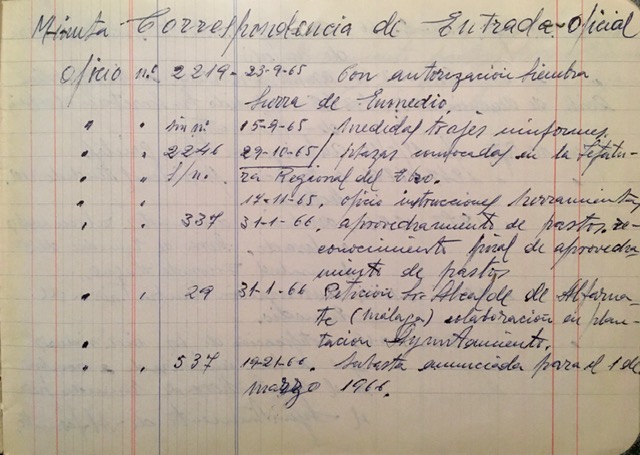 Minuta Correspondencia de Entrada-oficial
Oficio nº 2219- 23-9-65 Con autorización Siembra
Sierra de Enmedio.
" " sin nº 15-9-65 Medidas trajes uniformes.
" " 2246 29-10-65/ plazas convocadas en la Jefatu-
" " S/n. ra Regional del Ebo.
17-11-65. oficio instrucciones herramientas
" " 337 31-1-66. aprovechamiento de pastos, re-
conocimiento final de aprovecha
miento de pastos
" " 29 31-1-66 Petición Sr Alcalde de Alfarna-
te (Málaga) colaboración en plan-
" tacion Ayuntamiento.
" " 537 19-21-66. Subasta anunciada para el 1 de
marzo 1966.